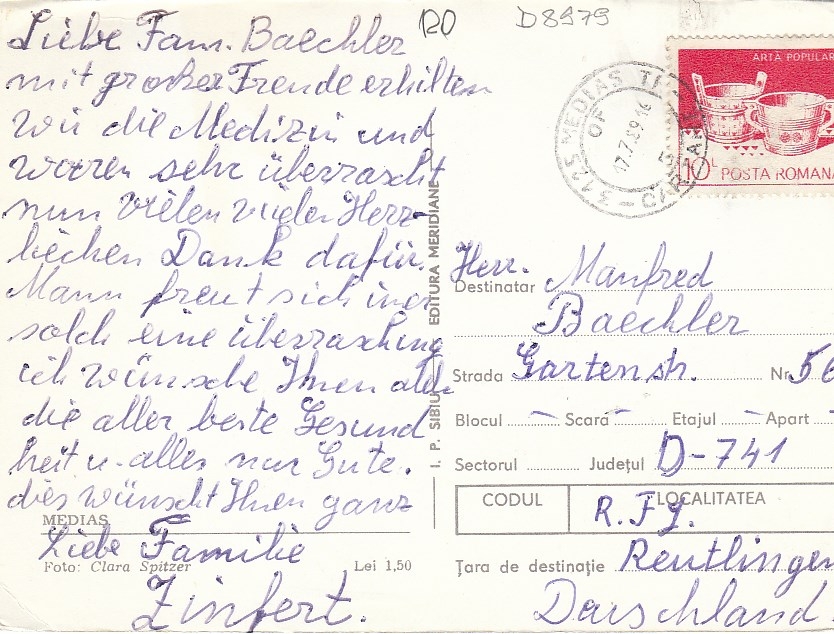 RO D8979
Liebe Fam. Baechler
mit großer Freude erhilten
wir die Medizin und
waren sehr überrascht
nun vielen vielen Herz-
lichen Dank dafür.
Mann freut sich
solch eine überraschung
ich wünsche Ihnen
die aller beste Gesund
heit u. alles nur Gute.
dies wünscht Ihnen ganz
Liebe Familie
Zinfert.
MEDIAȘ
Foto: Clara Spitzer Lei 1,50
I. P. SIBIU EDITURA MERIDIANE
3125 MEDIAS
OF
17.7.89.16
ARTA POPULAR
10L POSTA ROMANA
Destinatar Herr. Manfred
Baechler
Strada Gartenstr. Nr. 56
Blocul – Scară – Etajul – Apart –
Sectorul Județul D-741
CODUL LOCALITATEA
R.F.G.
Țara de destinație Reutlingen
Daischland